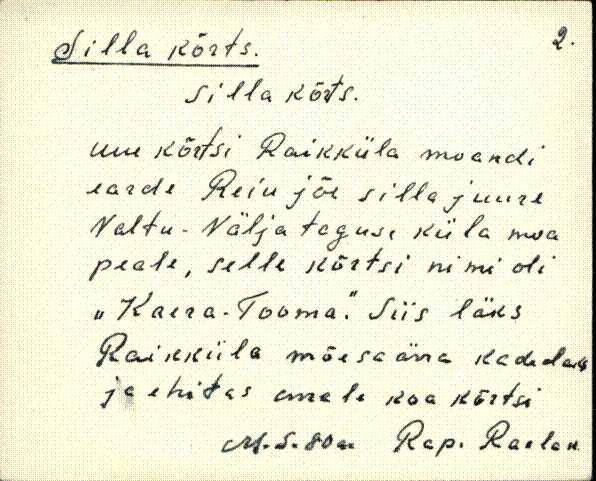 Silla kõrts. 2.
Silla kõrts.
uue kõrtsi Raikküla moandi
earde Reiu jõe silla juure
Valtu-Välja taguse küla moa
peale, selle kõrtsi nimi oli
„Kaera-Tooma". Siis läks
Raikküla mõesaära kadedaks
ja ehitas omale koa kõrtsi
M.S. 80 a. Rap. Raelan